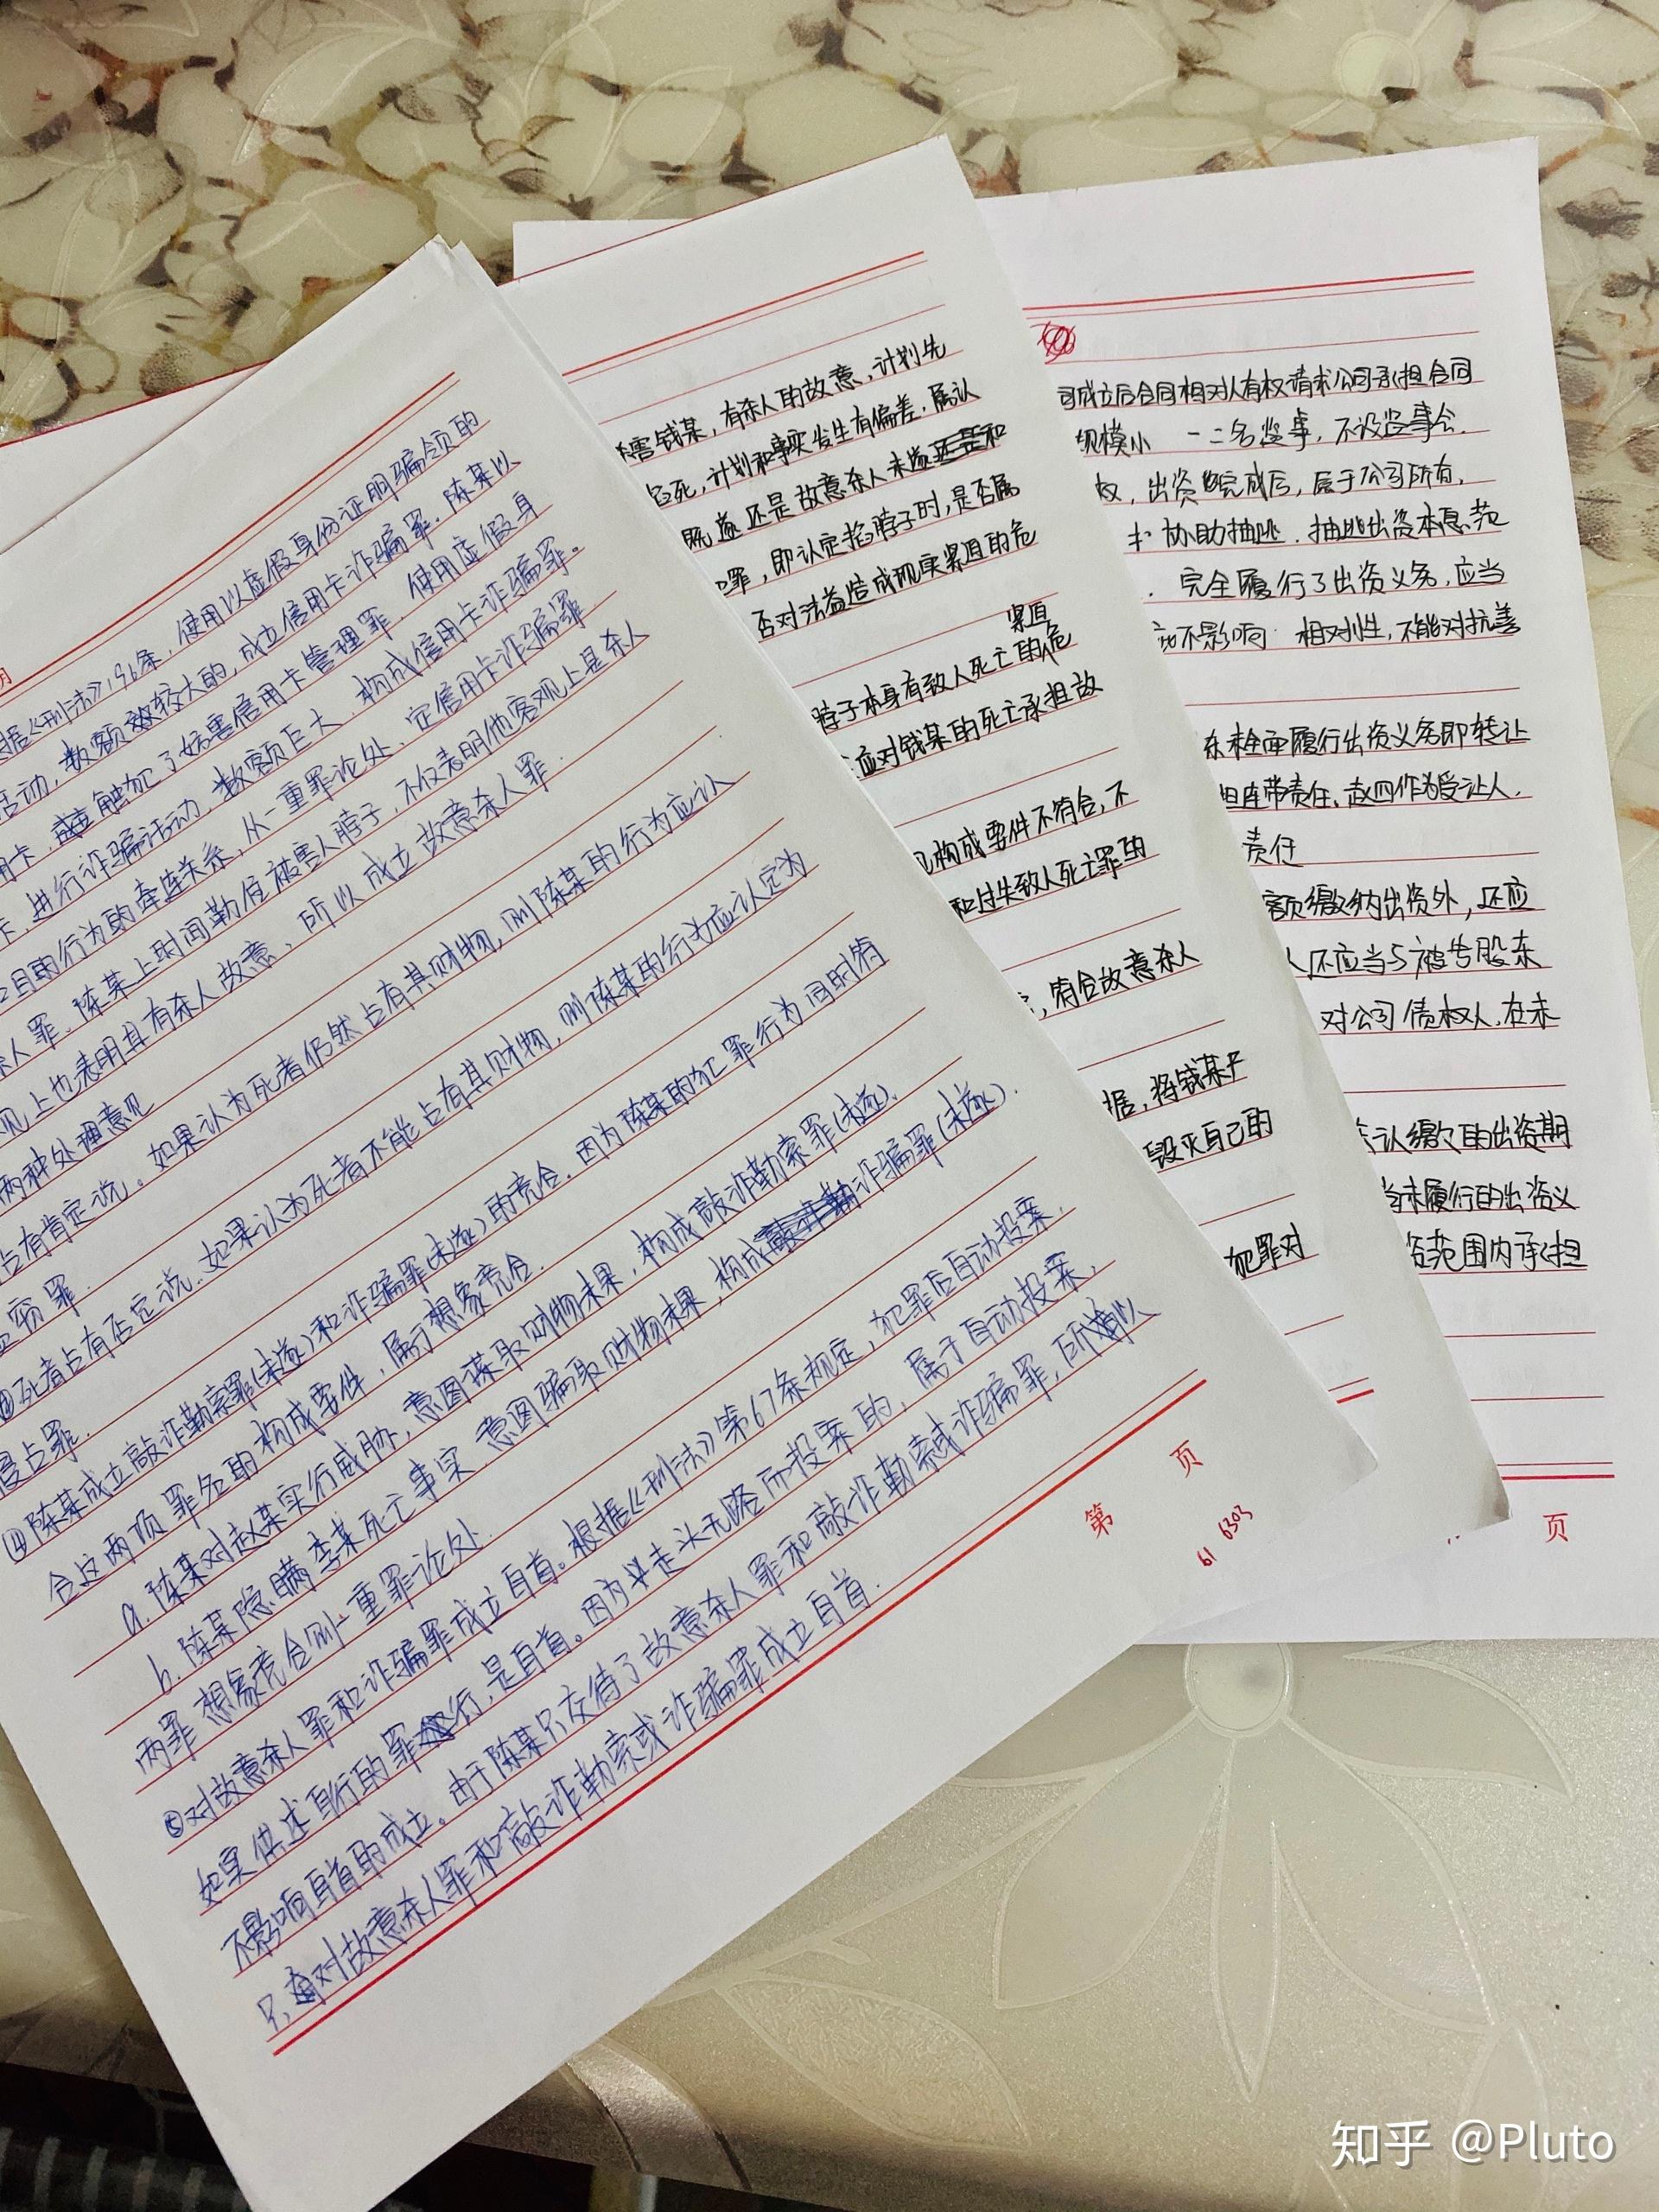 据《刑法》196条，使用以虚假身份证明骗领的
活动，数额较大的，成立信用卡诈骗罪。陈某以
用卡，触犯了妨害信用卡管理罪，使用虚假身
卡，进行诈骗活动，数额巨大，构成信用卡诈骗罪。
目的行为的牵连关系，从一重罪论处，定信用卡诈骗罪
杀人罪。陈某上时间勒住被害人脖子，不仅表明他客观上是杀
观上也表明其有杀人故意，所以成立故意杀人罪．
两种处理意见
占有肯定说。如果认为死者仍然占有其财物，则陈某的行为应认
窃罪．
死者占有否定说．如果认为死者不能占有其财物，则陈某的行为应认定为
侵占罪．
④陈某成立敲诈勒索罪(未遂)和诈骗罪(未遂)的竞合．因为陈某的犯罪行为同时符
合这两项罪名的构成要件，属于想象竞合．
a．陈某对赵某实行威胁，意图谋取财物未果，构成敲诈勒索罪(未遂)．
b．陈某隐瞒李某死亡事实，意图骗取财物未果，构成诈骗罪(未遂)．
两罪想象竞合则一重罪论处．
⑤对故意杀人罪和诈骗罪成立自首。根据《刑法》第67条规定，犯罪后自动投案，
如实供述自行的罪行，是自首。因为走头无路而投案的，属于自动投案，
不影响自首的成立。由于陈某只交待了故意杀人罪和敲诈勒索或诈骗罪，所以
只对故意杀人罪和敲诈勒索或诈骗罪成立自首．
第 页
61 6303
害钱某，有杀人的故意，计划先
掐死，计划和事实发生有偏差．属认
既遂还是故意杀人未遂
罪，即认定掐脖子时，是否属
否对法益造成现实紧迫的危
紧迫
脖子本身有致人死亡的危
应对钱某的死亡承担故
构成要件不符合，不
和过失致人死亡罪的
，符合故意杀人
据，将钱某尸
毁灭自己的
犯罪对
司成立后合同相对人有权请求公司承担合同
规模小 一二名监事，不设监事会．
权，出资完成后，属于公司所有．
协助抽逃．抽逃出资本息范
．完全履行了出资义务，应当
不影响 相对性，不能对抗善
东未全面履行出资义务即转让
担连带责任．赵四作为受让人．
责任
额缴纳出资外，还应
人还应当与被告股东
对公司债权人．在未
认缴的出资期
当未履行的出资义
资范围内承担
页
知乎 @Pluto